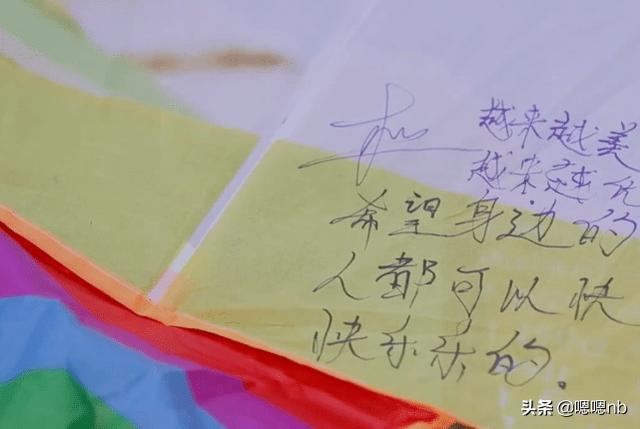 越来越美
越来越优
希望身边的
人都可以快
快乐乐的。
头条 @嗯嗯nb